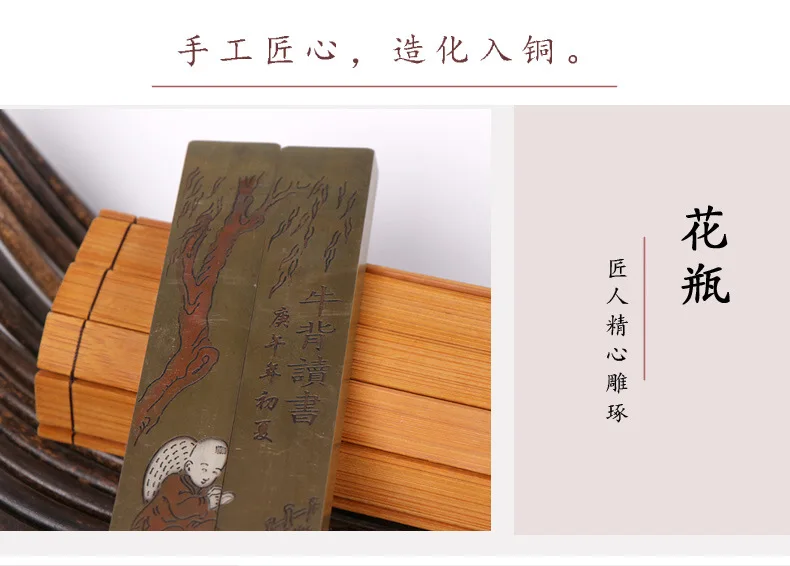 手工匠心，造化入铜。
牛背讀書
庚午年初夏
花瓶
匠人精心雕琢